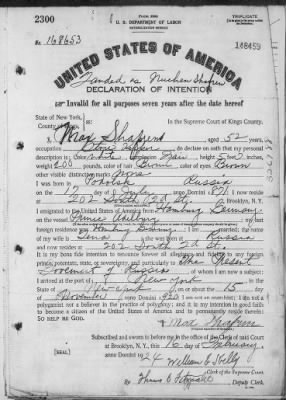 2300
Form 2203
U. S. DEPARTMENT OF LABOR
NATURALIZATION SERVICE
TRIPLICATE
No. 168653
168459
UNITED STATES OF AMERICA
Landed as
DECLARATION OF INTENTION
Invalid for all purposes seven years after the date hereof
State of New York,
County of Kings,
ss:
In the Supreme Court of Kings County.
I, Max Shapiro, aged 52 years,
occupation, do declare on oath that my personal
description is: Color white, complexion Fair, height 5 feet 7 inches,
weight 200 pounds, color of hair Brown, color of eyes Brown
other visible distinctive marks None
I was born in Russia
on the 17 day of July, anno Domini 1871; I now reside
at 202 South 2d St., Brooklyn, N.Y.
I emigrated to the United States of America from Hamburg Germany
on the vessel; my last
foreign residence was Hamburg Germany; I am married; the name
of my wife is; she was born at Russia
and now resides at 202 South 2d St.
It is my bona fide intention to renounce forever all allegiance and fidelity to any foreign
prince, potentate, state, or sovereignty, and particularly to The Present
Government of Russia, of whom I am now a subject;
I arrived at the port of New York, in the
State of New York, on or about the 15 day
of November, anno Domini 1920; I am not an anarchist; I am not a
polygamist nor a believer in the practice of polygamy; and it is my intention in good faith
to become a citizen of the United States of America and to permanently reside therein:
SO HELP ME GOD.
Max Shapiro
Subscribed and sworn to before me in the office of the Clerk of said Court
at Brooklyn, N. Y., this 16 day of February
anno Domini 1924
[SEAL]
William E. Kelly
Clerk.
By, Deputy Clerk.